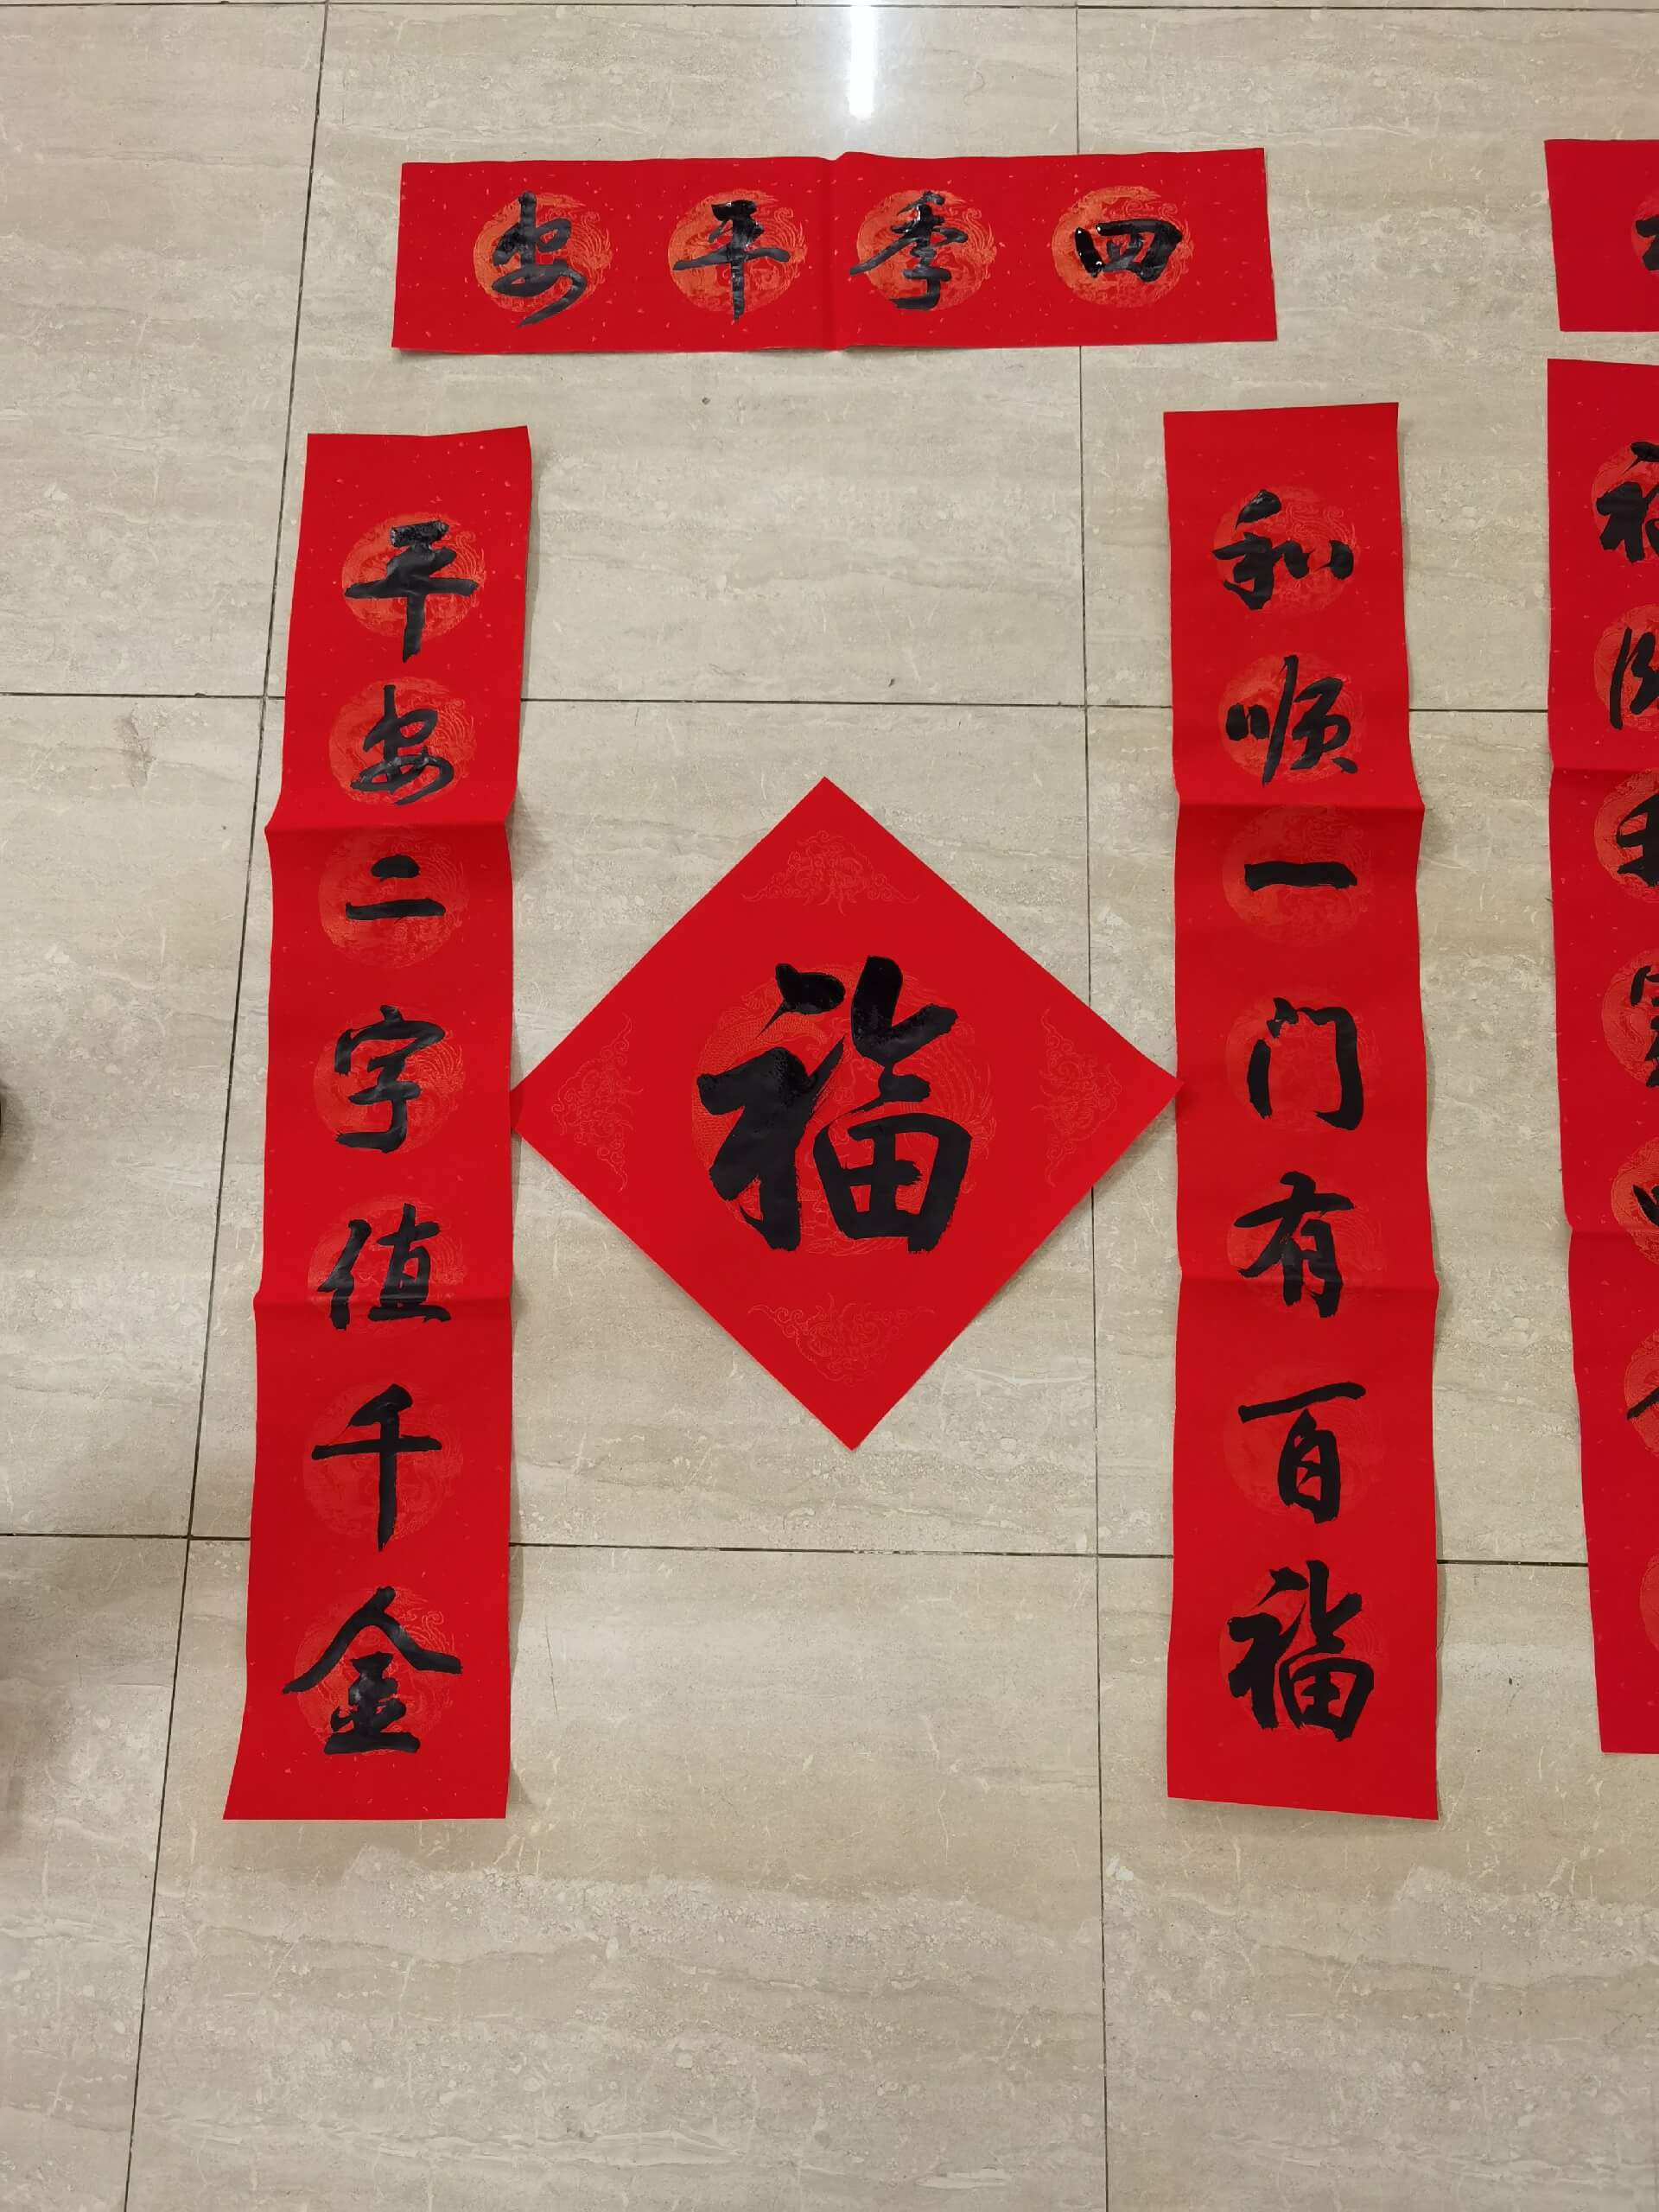 四季平安
和顺一门有百福
平安二字值千金
福